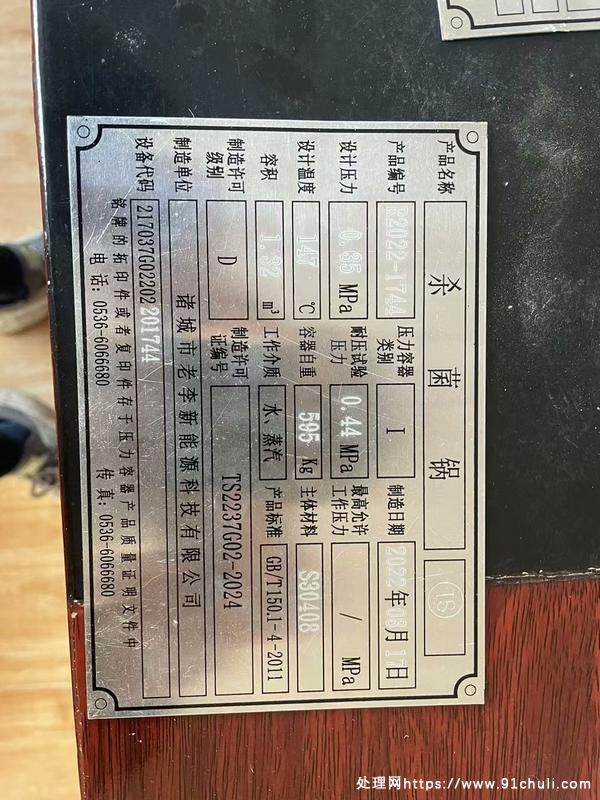 产品名称 杀菌锅 TS
产品编号 R2022-1744 压力容器类别 I 制造日期 2022年03月17日
设计压力 0.35 MPa 耐压试验压力 0.44 MPa 最高允许工作压力 / MPa
设计温度 147 ℃ 容器自重 595 Kg 主体材料 S30408
容积 1.32 m³ 工作介质 水、蒸汽 产品标准 GB/T150.1-4-2011
制造许可级别 D 制造许可证编号 TS2237G02-2024
制造单位 诸城市老李新能源科技有限公司
设备代码 217037G02202201744
铭牌的拓印件或者复印件存于压力容器产品质量证明文件中
电话：0536-6066680 传真：0536-6066680
处理网https://www.91chuli.com